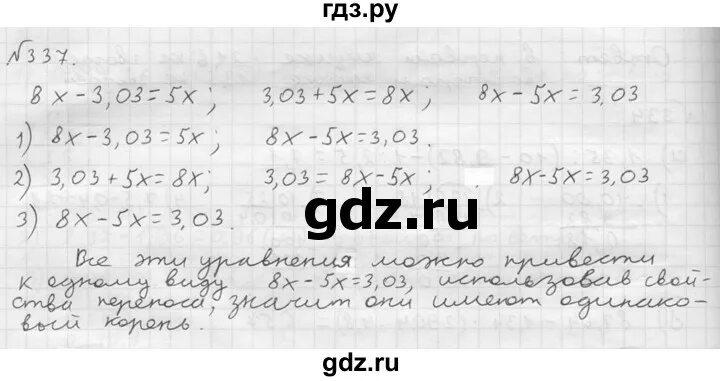 гдз.ру
№337.
8x-3,03=5x; 3,03+5x=8x; 8x-5x=3,03
1) 8x-3,03=5x; 8x-5x=3,03.
2) 3,03+5x=8x; 3,03=8x-5x; 8x-5x=3,03
3) 8x-5x=3,03.
gdz.ru
Все эти уравнения можно привести
к одному виду 8x-5x=3,03, использовав свой-
ства переноса, значит они имеют одинако-
вый корень.
gdz.ru